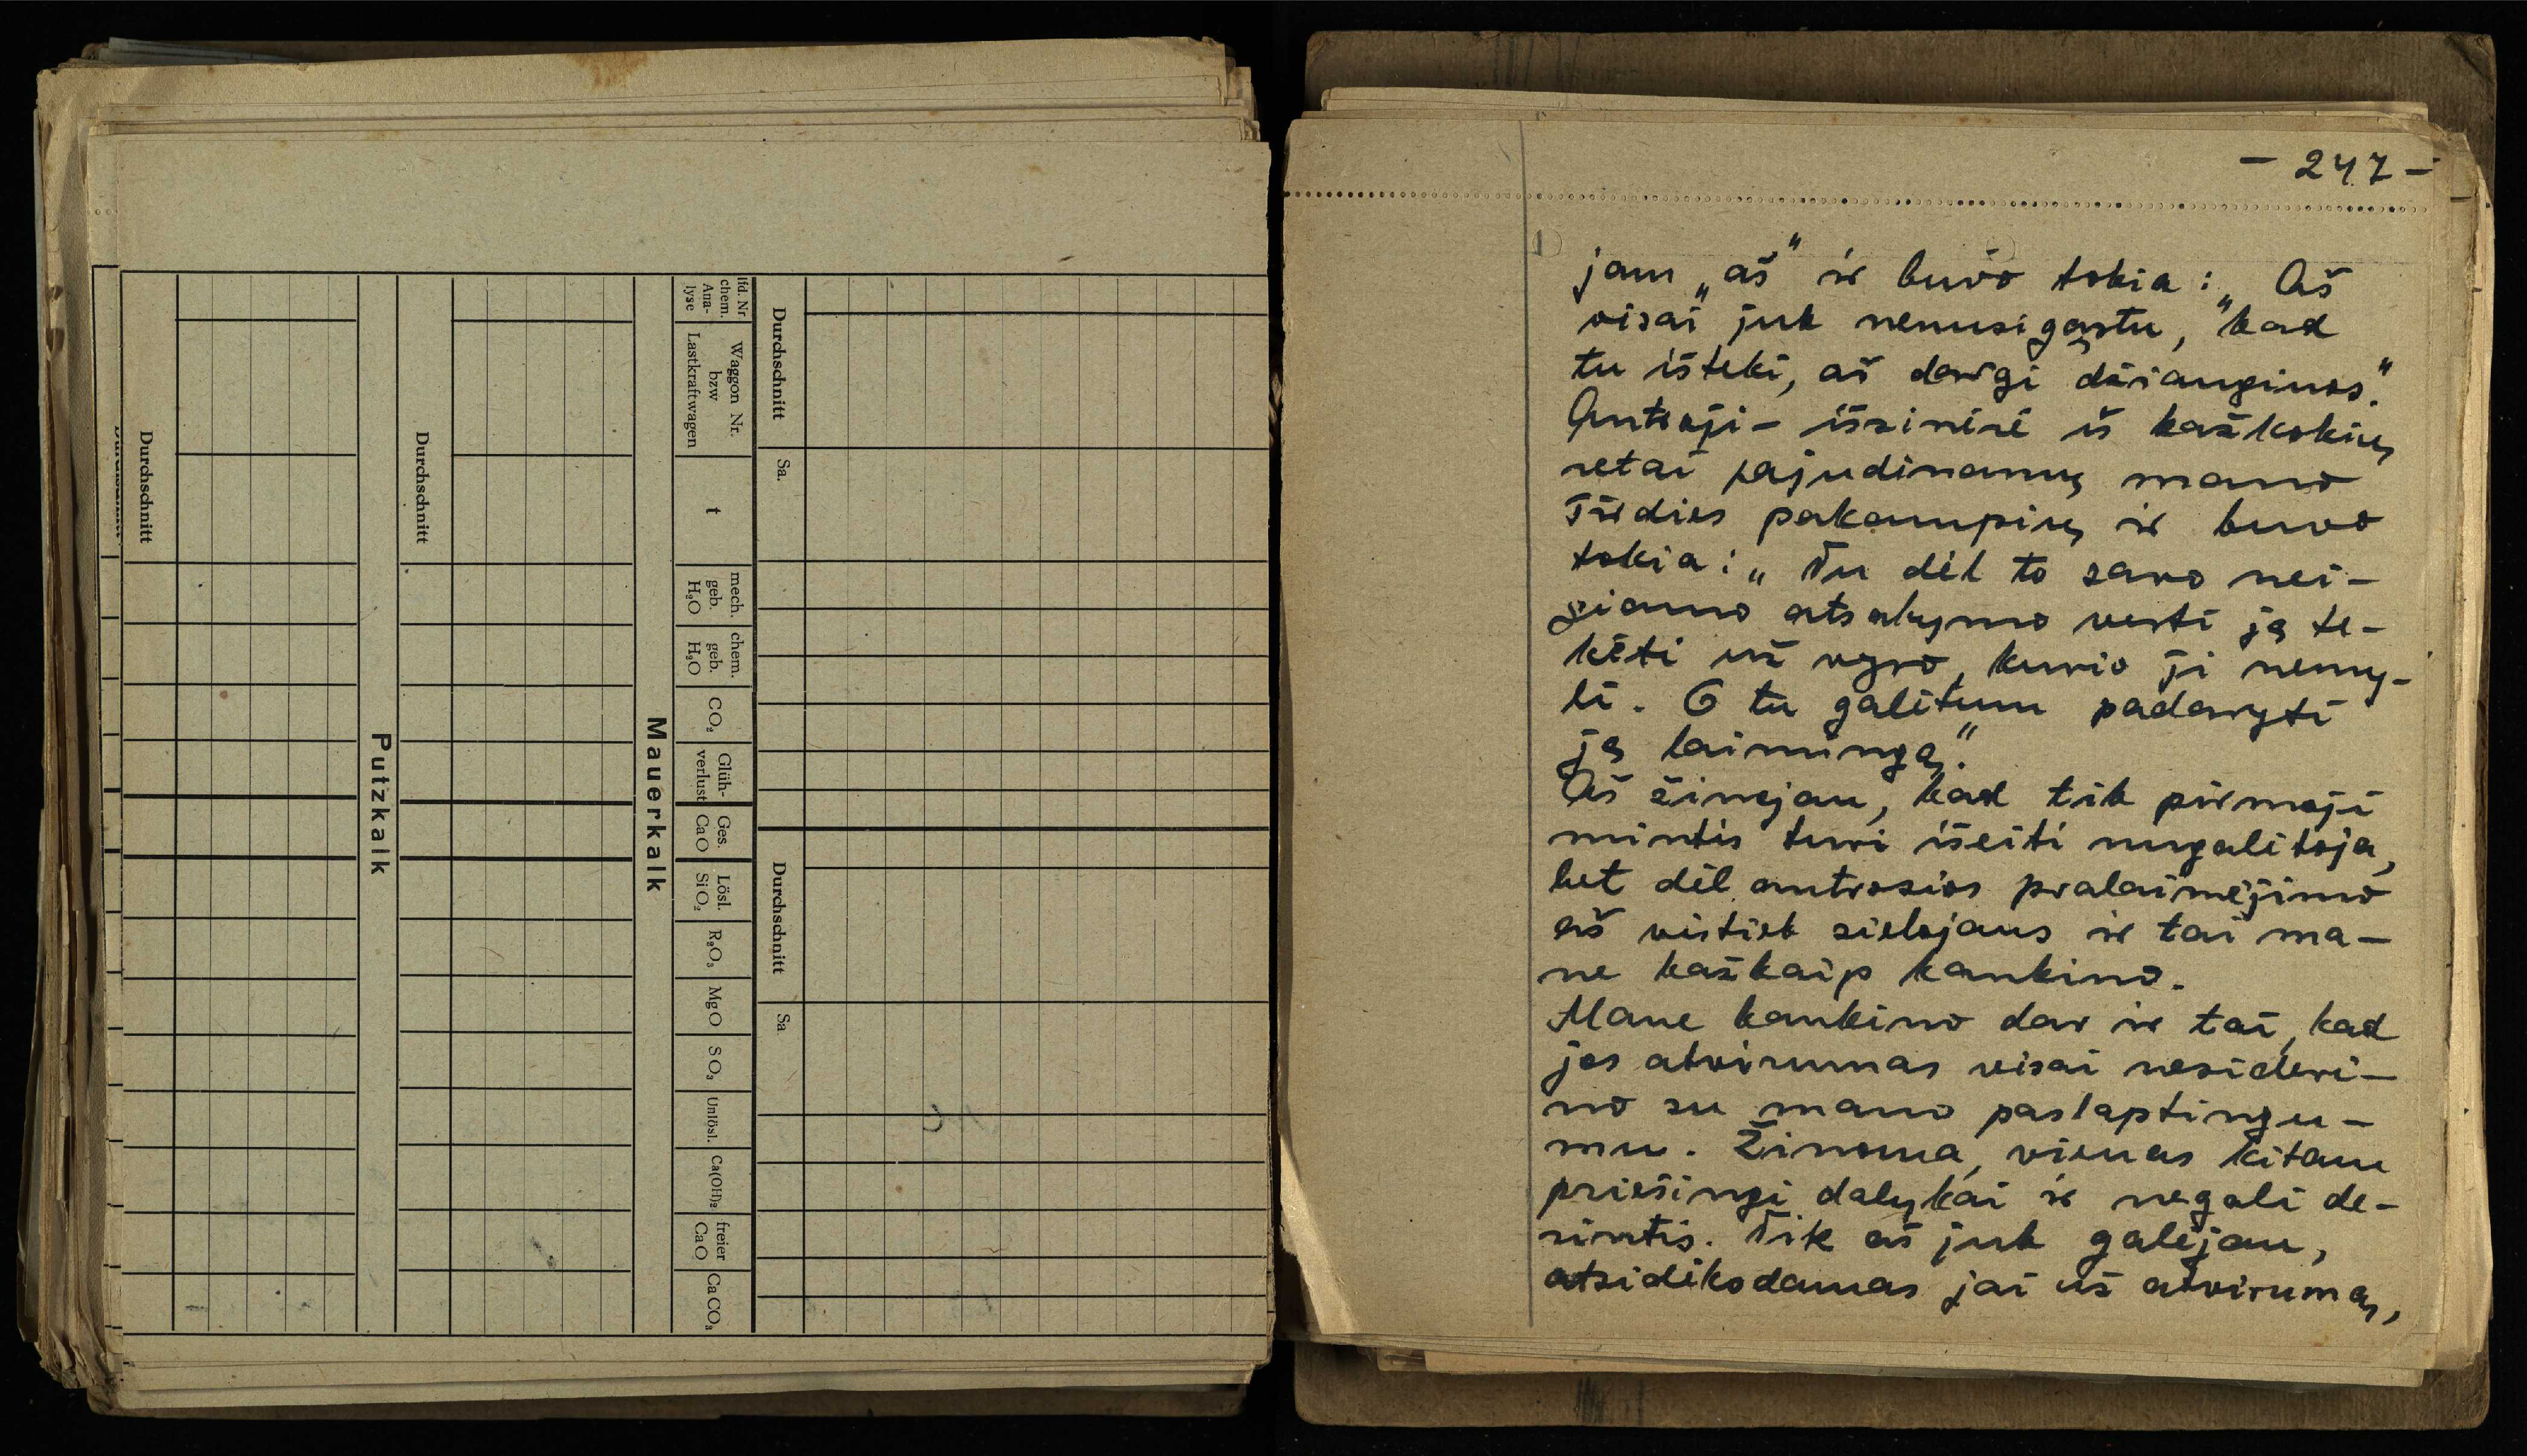 Durchschnitt
Sa.
Durchschnitt
Sa
lfd. Nr
chem.
Ana-
lyse
Waggon Nr.
bzw
Lastkraftwagen
t
mech.
geb.
H₂O
chem.
geb.
H₂O
CO₂
Glüh-
verlust
Ges.
CaO
Lösl.
SiO₂
R₂O₃
MgO
SO₃
Unlösl.
Ca(OH)₂
freier
CaO
CaCO₃
Mauerkalk
Durchschnitt
Putzkalk
Durchschnitt
- 247 -
jam „aš” ir buvo tokia: „Aš
visai juk nenusigąstu, kad
tu išteki, aš dargi džiaugiuos.”
Antroji - išsinėrė iš kažkokių
retai pajudinamų mano
širdies pakampių ir buvo
tokia: „Tu dėl to savo nei-
giamo atsakymo verti ją te-
kėti už vyro, kurio ji nemy-
li. O tu galėtum padaryti
ją laimingą.”
Aš žinojau, kad tik pirmoji
mintis turi išeiti nugalėtoja,
bet dėl antrosios pralaimėjimo
aš vistiek sielojaus ir tai ma-
ne kažkaip kankino.
Mane kankino dar ir tai, kad
jos atvirumas visai nesideri-
no su mano paslaptingu-
mu. Žinoma, vienas kitam
priešingi dalykai ir negali de-
rintis. Tik aš juk galėjau,
atsidėkodamas jai už atvirumą,